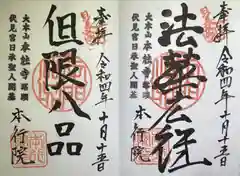 奉拝
令和四年十月
法華
大本山 本能寺 塔頭
伏見宮日承聖人開基
本行院
奉拝
令和四年十月
但限八品
大本山 本能寺 塔頭
伏見宮日承聖人開基
本行院